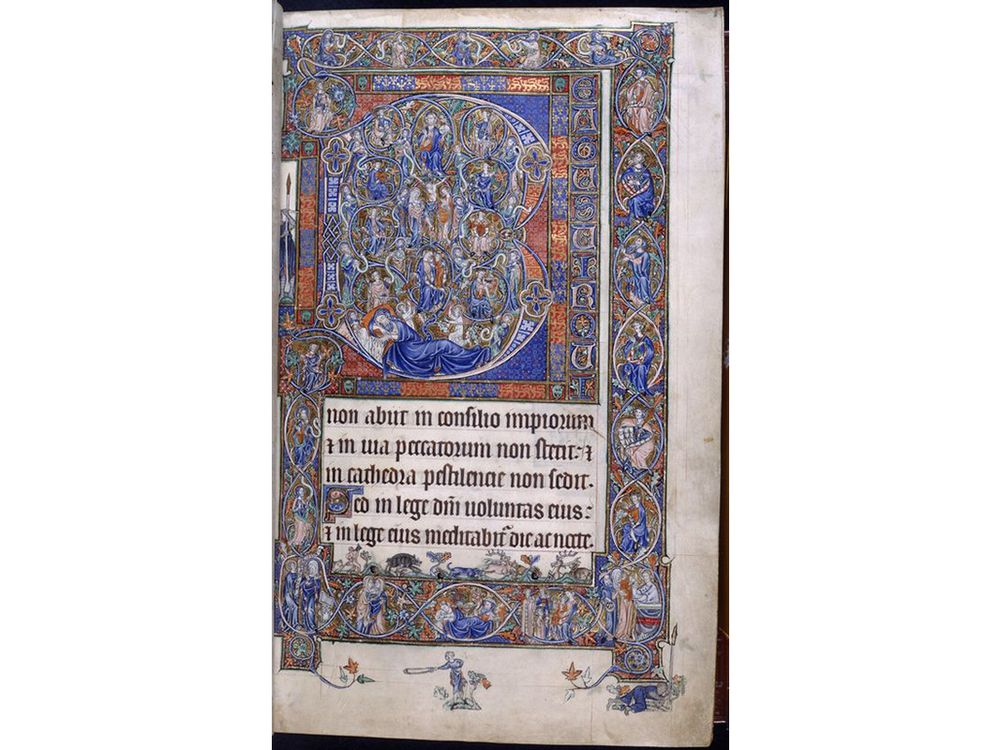 B
EATUSUIRQUI
non abiit in consilio impiorum
⁊ in uia peccatorum non stetit: ⁊
in cathedra pestilencie non sedit.
Sed in lege dn̄i uoluntas eius:
⁊ in lege eius meditabit᷑ die ac nocte.